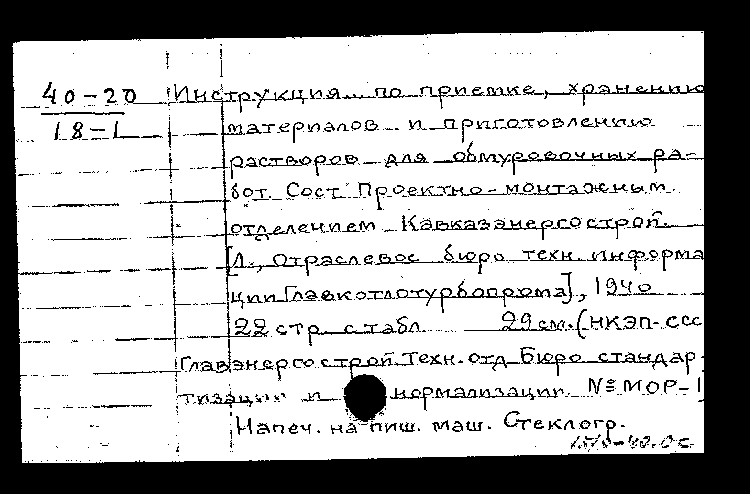 40-20 Инструкция по приемке, хранению
18-1 материалов и приготовлению
растворов для обмуровочных ра-
бот. Сост. Проектно-монтажным
отделением Кавказэнергострой.
[Л., Отраслевое бюро техн. информа
ции Главкотлотурбопрома], 1940
22 стр. с табл. 29 см. (НКЭП-ССС
Главэнергострой. Техн. отд. Бюро стандар-
тизации и нормализации. № МОР-1
Напеч. на пиш. маш. Стеклогр.